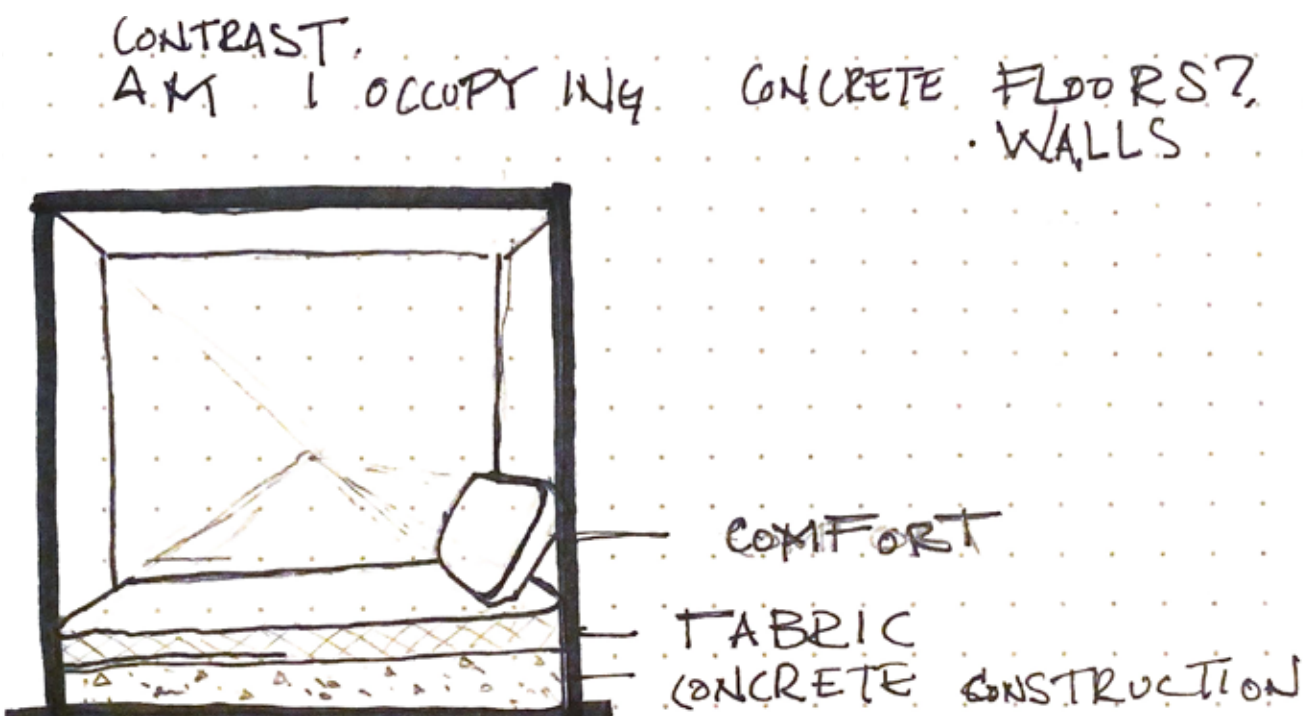 CONTRAST.
AM I OCCUPYING CONCRETE FLOORS?
. WALLS
COMFORT
FABRIC
CONCRETE CONSTRUCTION